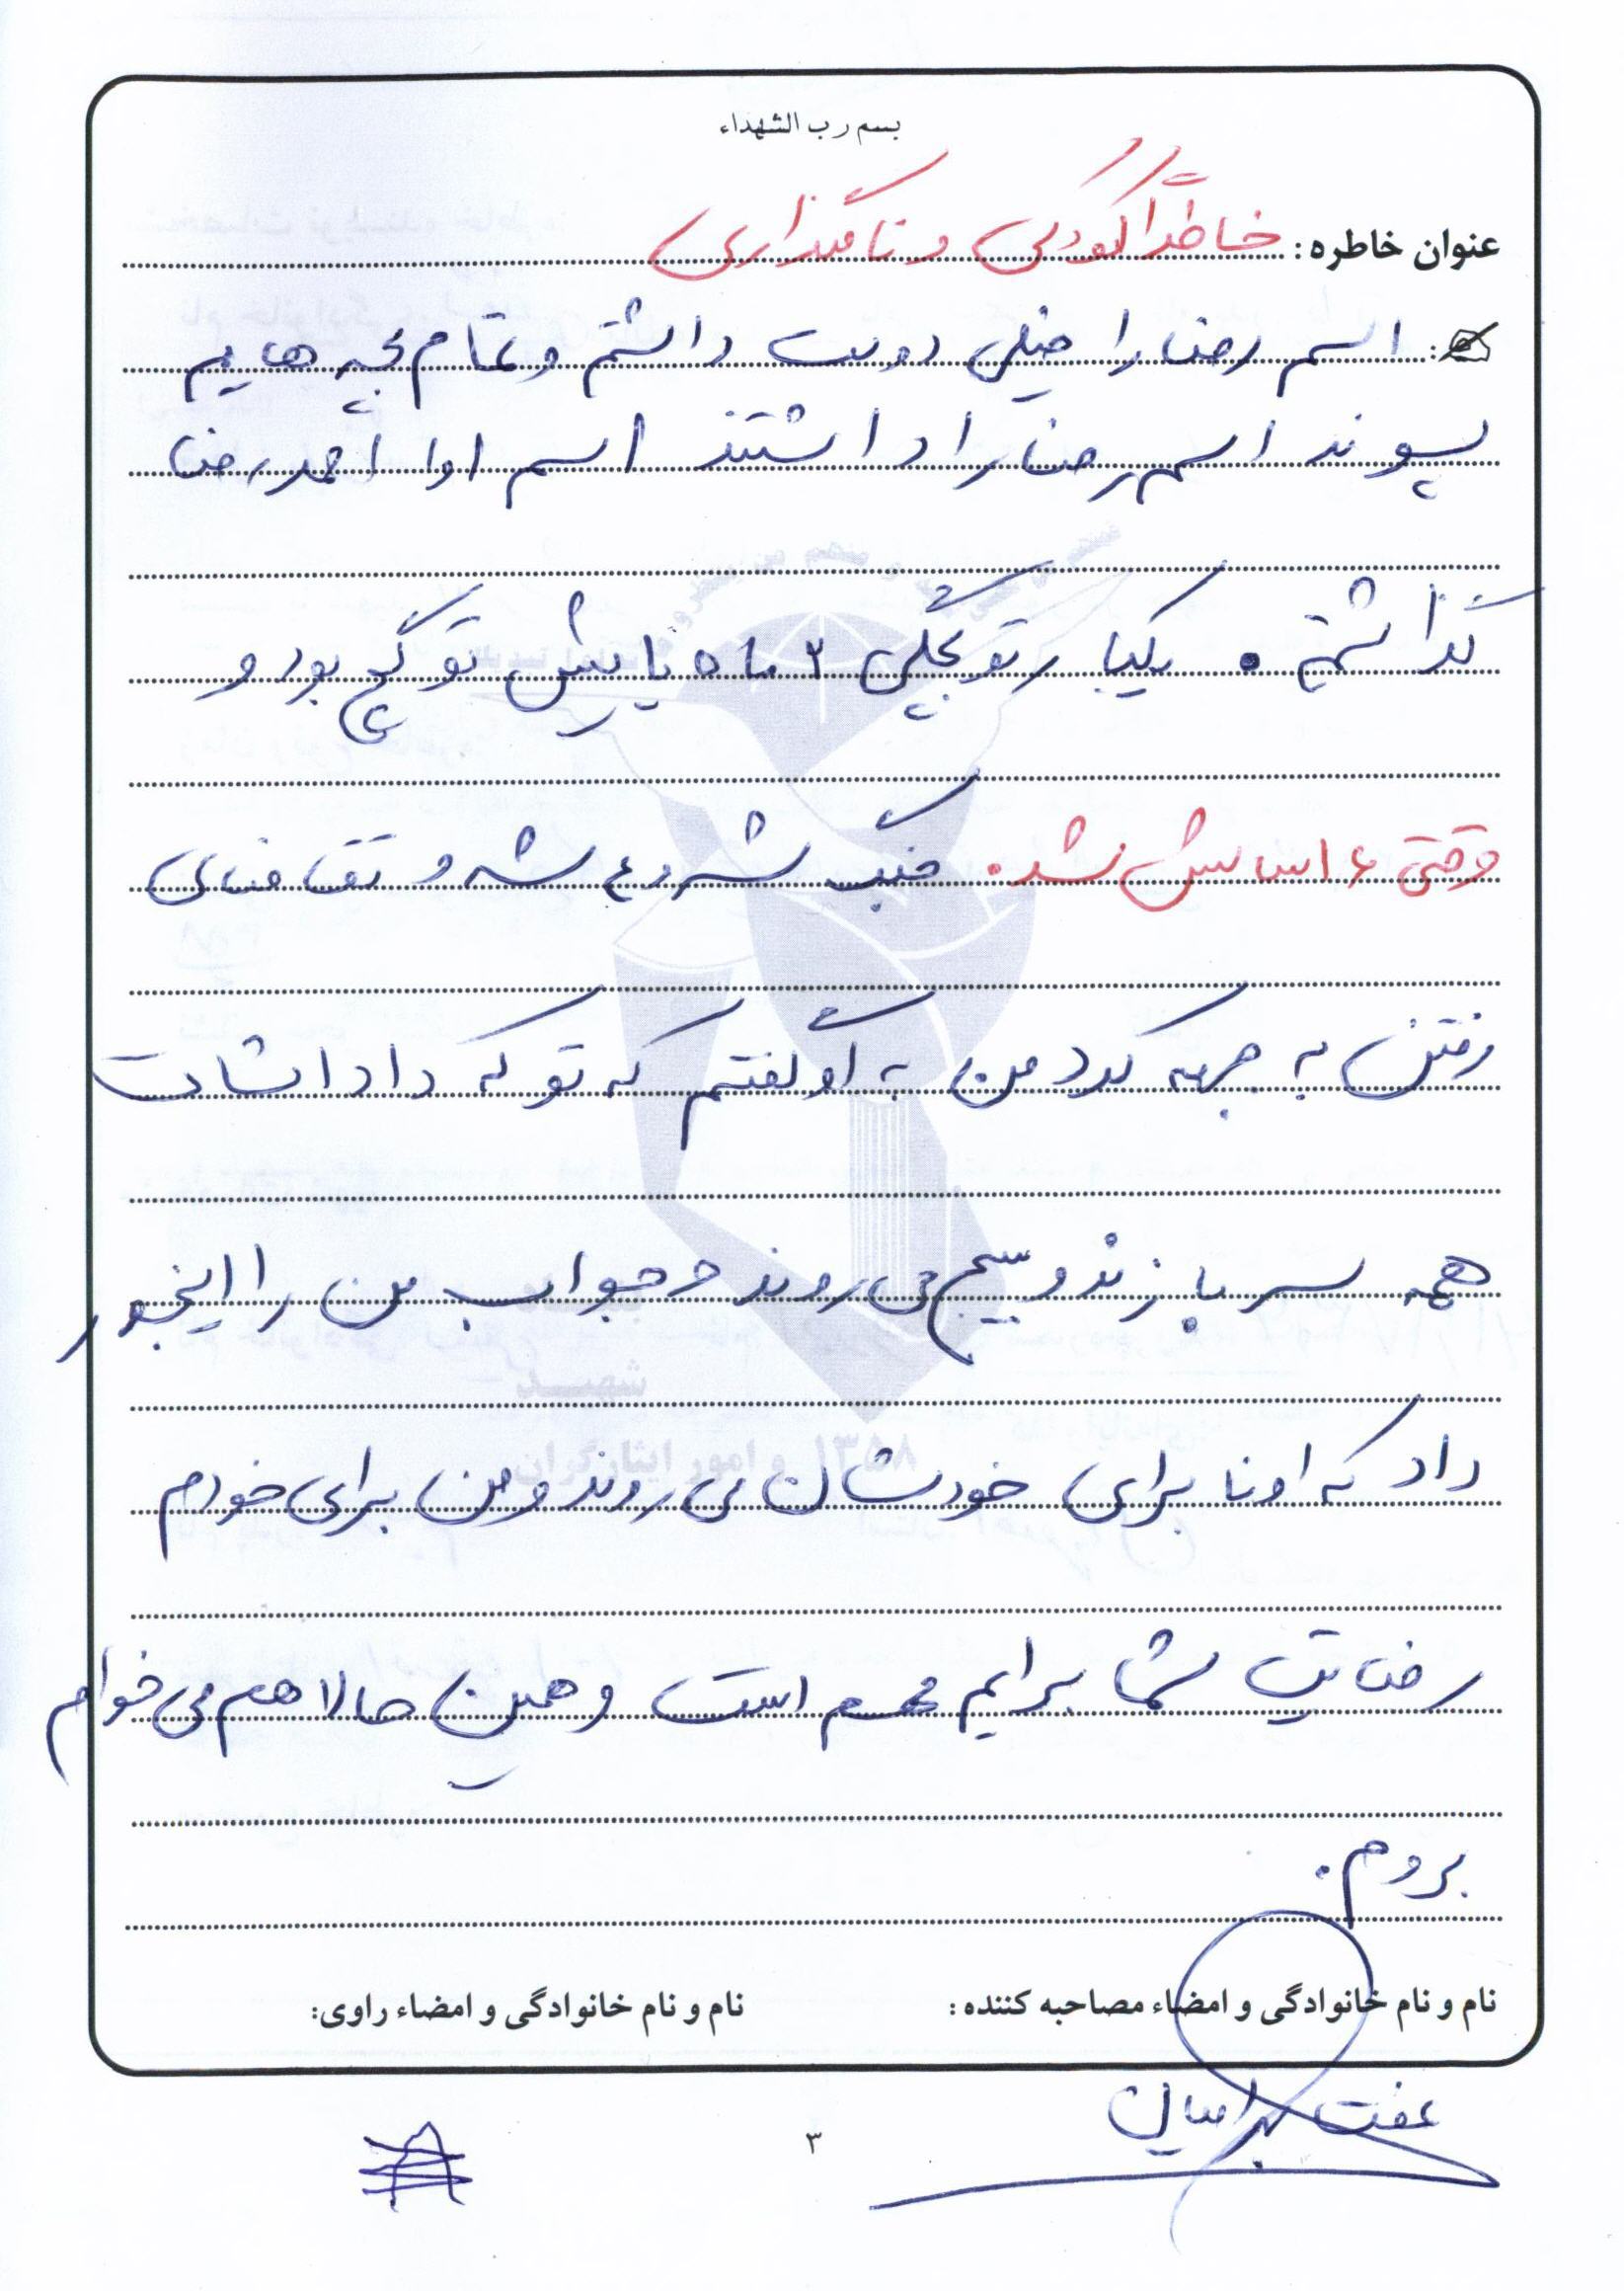 بسم رب الشهداء
عنوان خاطره: خاطرا کودکی و نامگذاری
اسم رضا را خیلی دوست داشتم و تمام بچه هایم
پسوند اسم رضا را داشتند اسم اورا احمدرضا
گذاشتم. یکبار تو بچگی ۳ ماه پایش تو گچ بود و
وقتی ۱۶ سالش شد. جنگ شروع شد و تقاضای
رفتن به جبهه کرد من به او گفتم که تو که داداشات
همه سربازند و بسیج می روند و جواب من را اینجور
داد که اونا برای خودشان می روند و من برای خودم
رضایت شما برایم مهم است و همین حالا هم می خوام
بروم.
نام و نام خانوادگی و امضاء مصاحبه کننده:
نام و نام خانوادگی و امضاء راوی:
عفت
۳